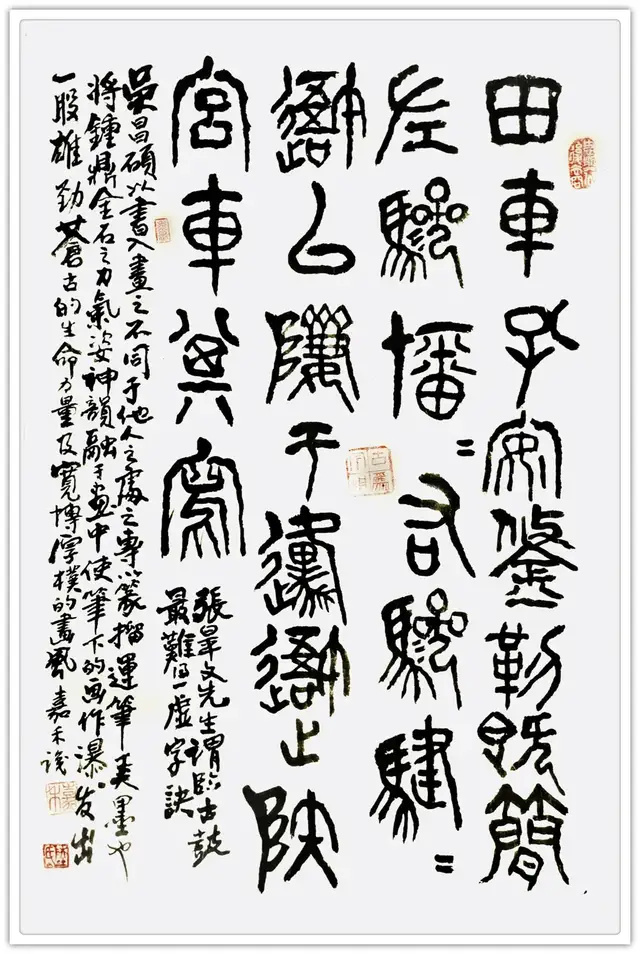 田車孔安鋚勒既簡
左驂旛=右驂騝=
吾以隮于邍吾止陝
宮車其寫
張皋文先生謂臨古鼓
最難得一虛字訣
吳昌碩以書入畫之不同于他人之處之專以篆籀運筆美墨也
將鍾鼎金石之力氣姿神韻融于畫中使筆下的画作瀑发出
一股雄勁蒼古的生命力量及寬博厚樸的畫風嘉禾識